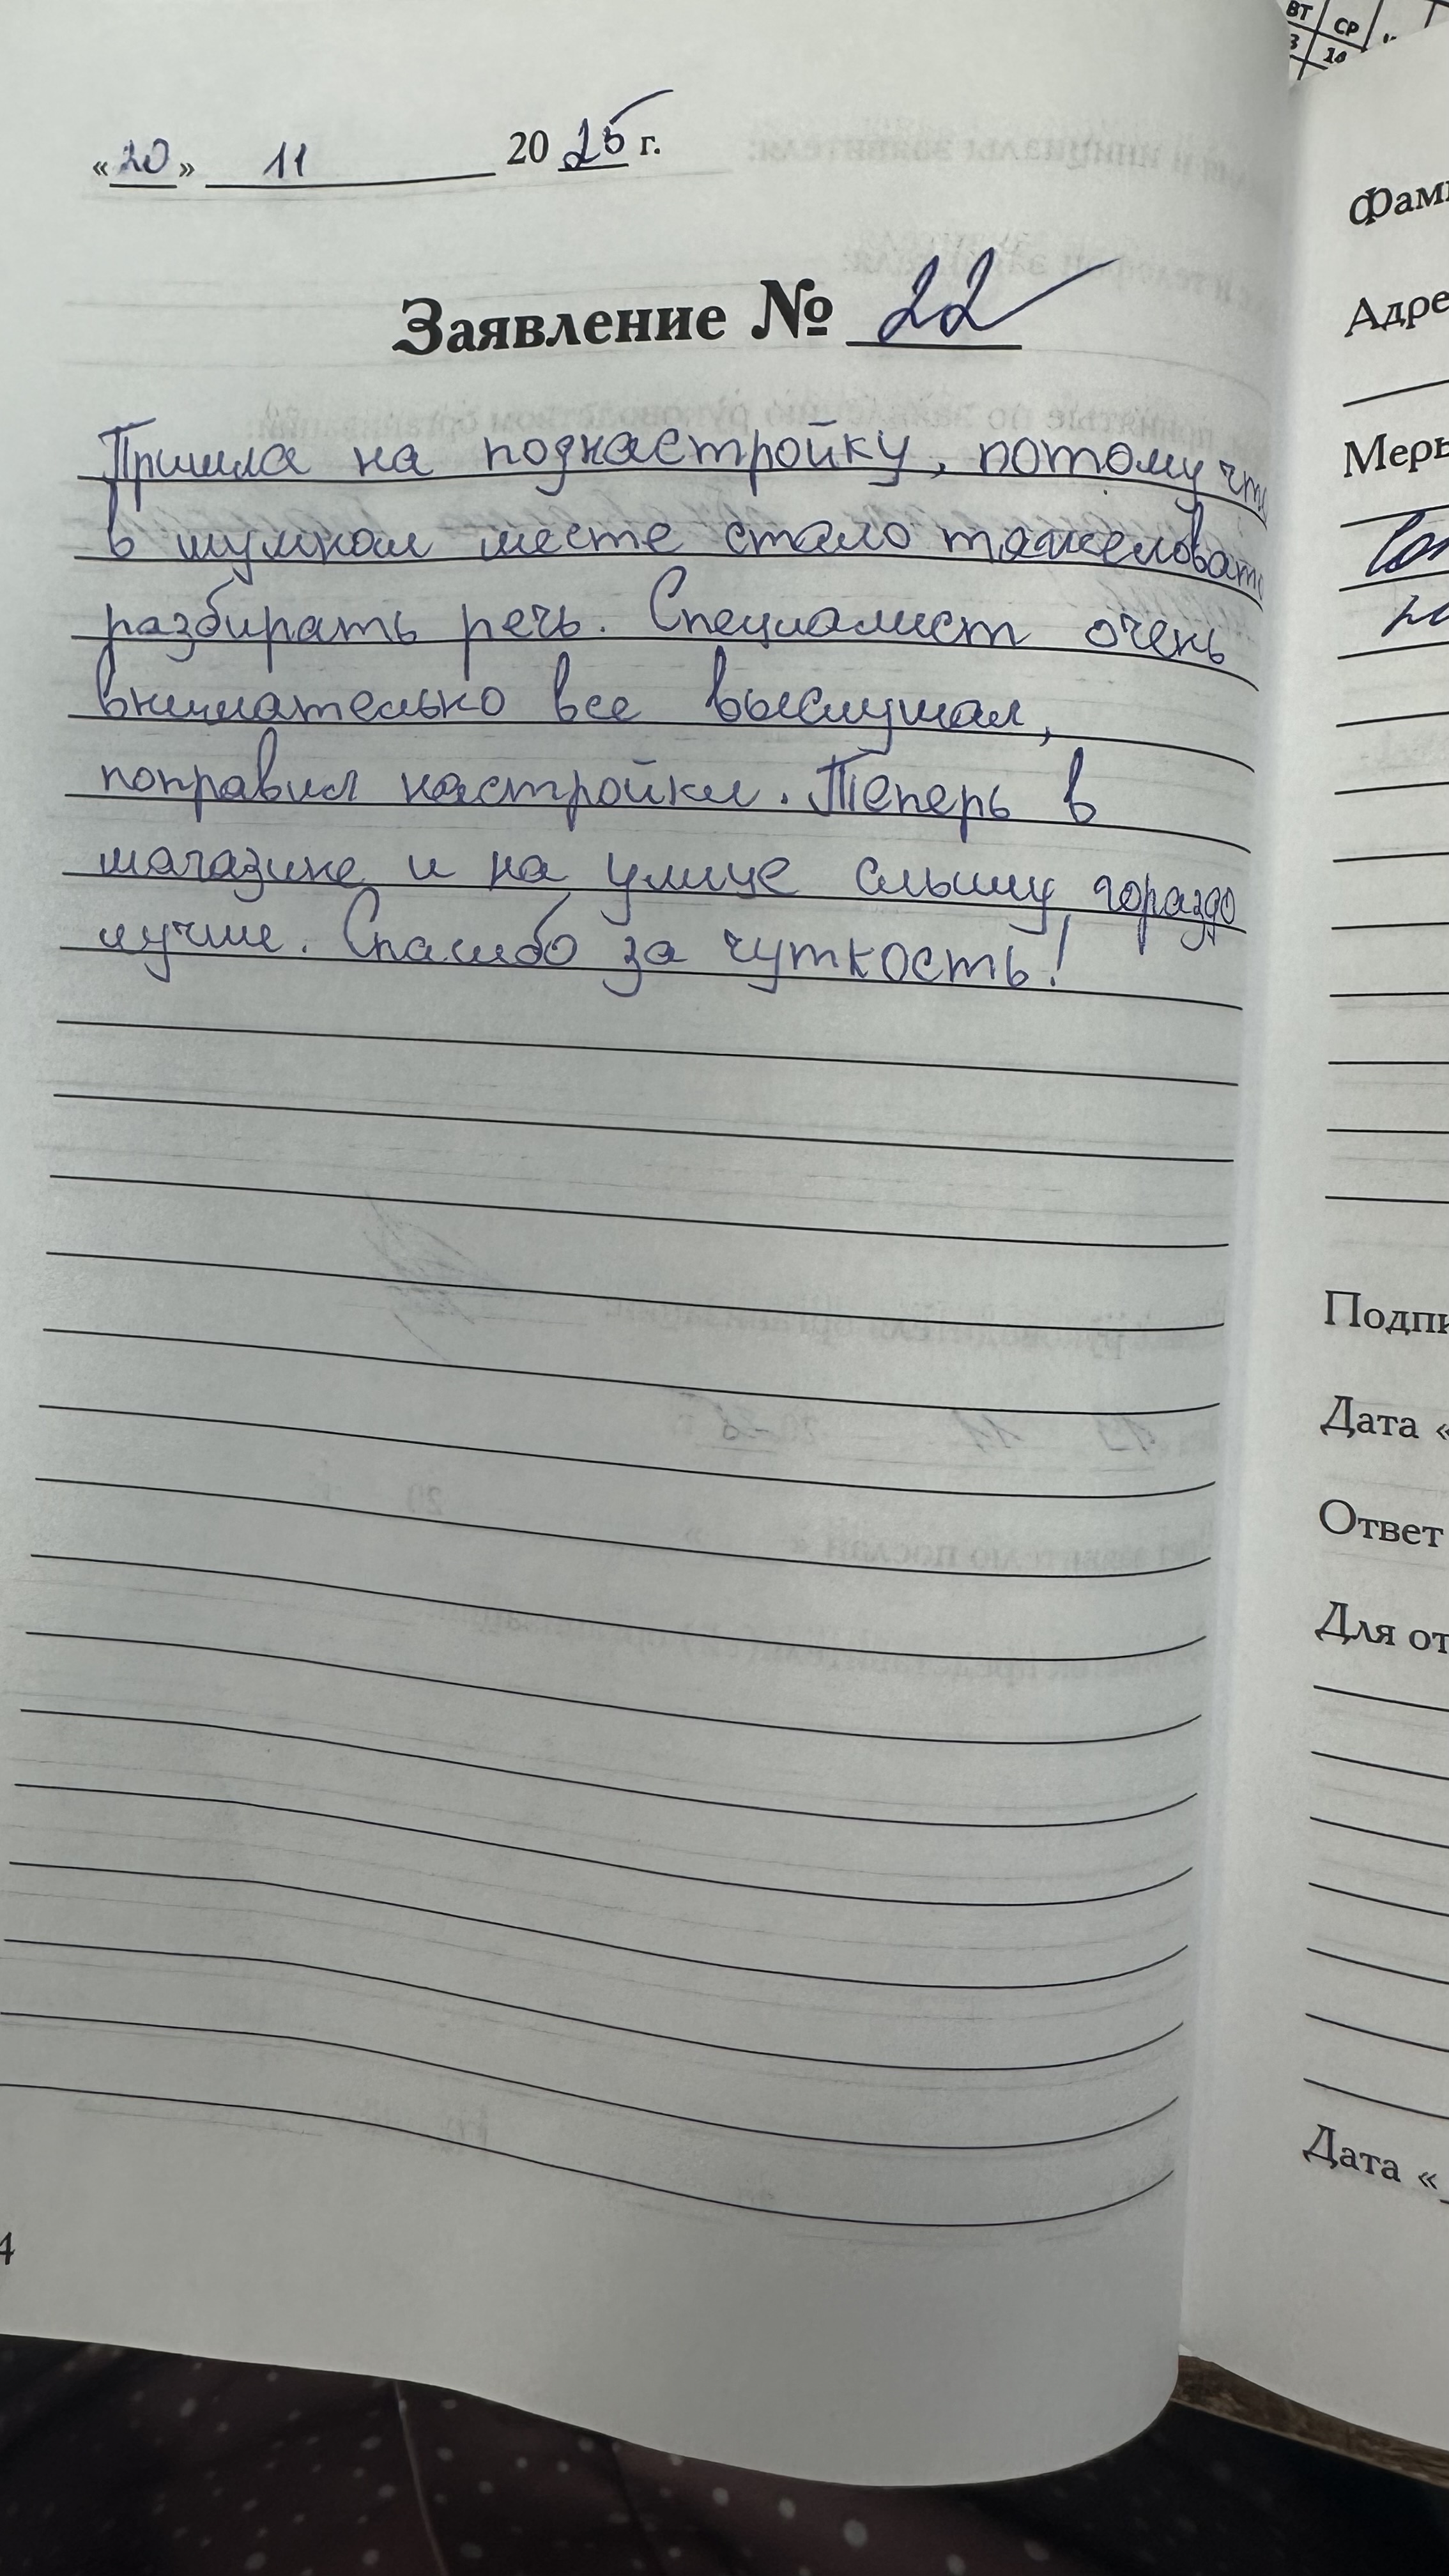 ВТ СР
3 10
«20» 11 2025 г.
Заявление № 22
Пришла на поднастройку, потому что
в шумном месте стало тяжеловато
разбирать речь. Специалист очень
внимательно все выслушал,
поправил настройки. Теперь в
магазине и на улице слышу гораздо
лучше. Спасибо за чуткость!
4
Фами
Адре
Меры
Подпи
Дата «
Ответ
Для от
Дата «